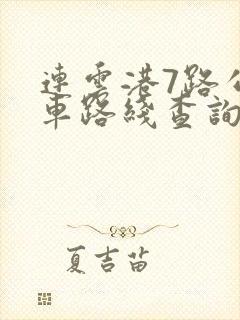 連雲港7路公
車路綫查詢
夏吉苗